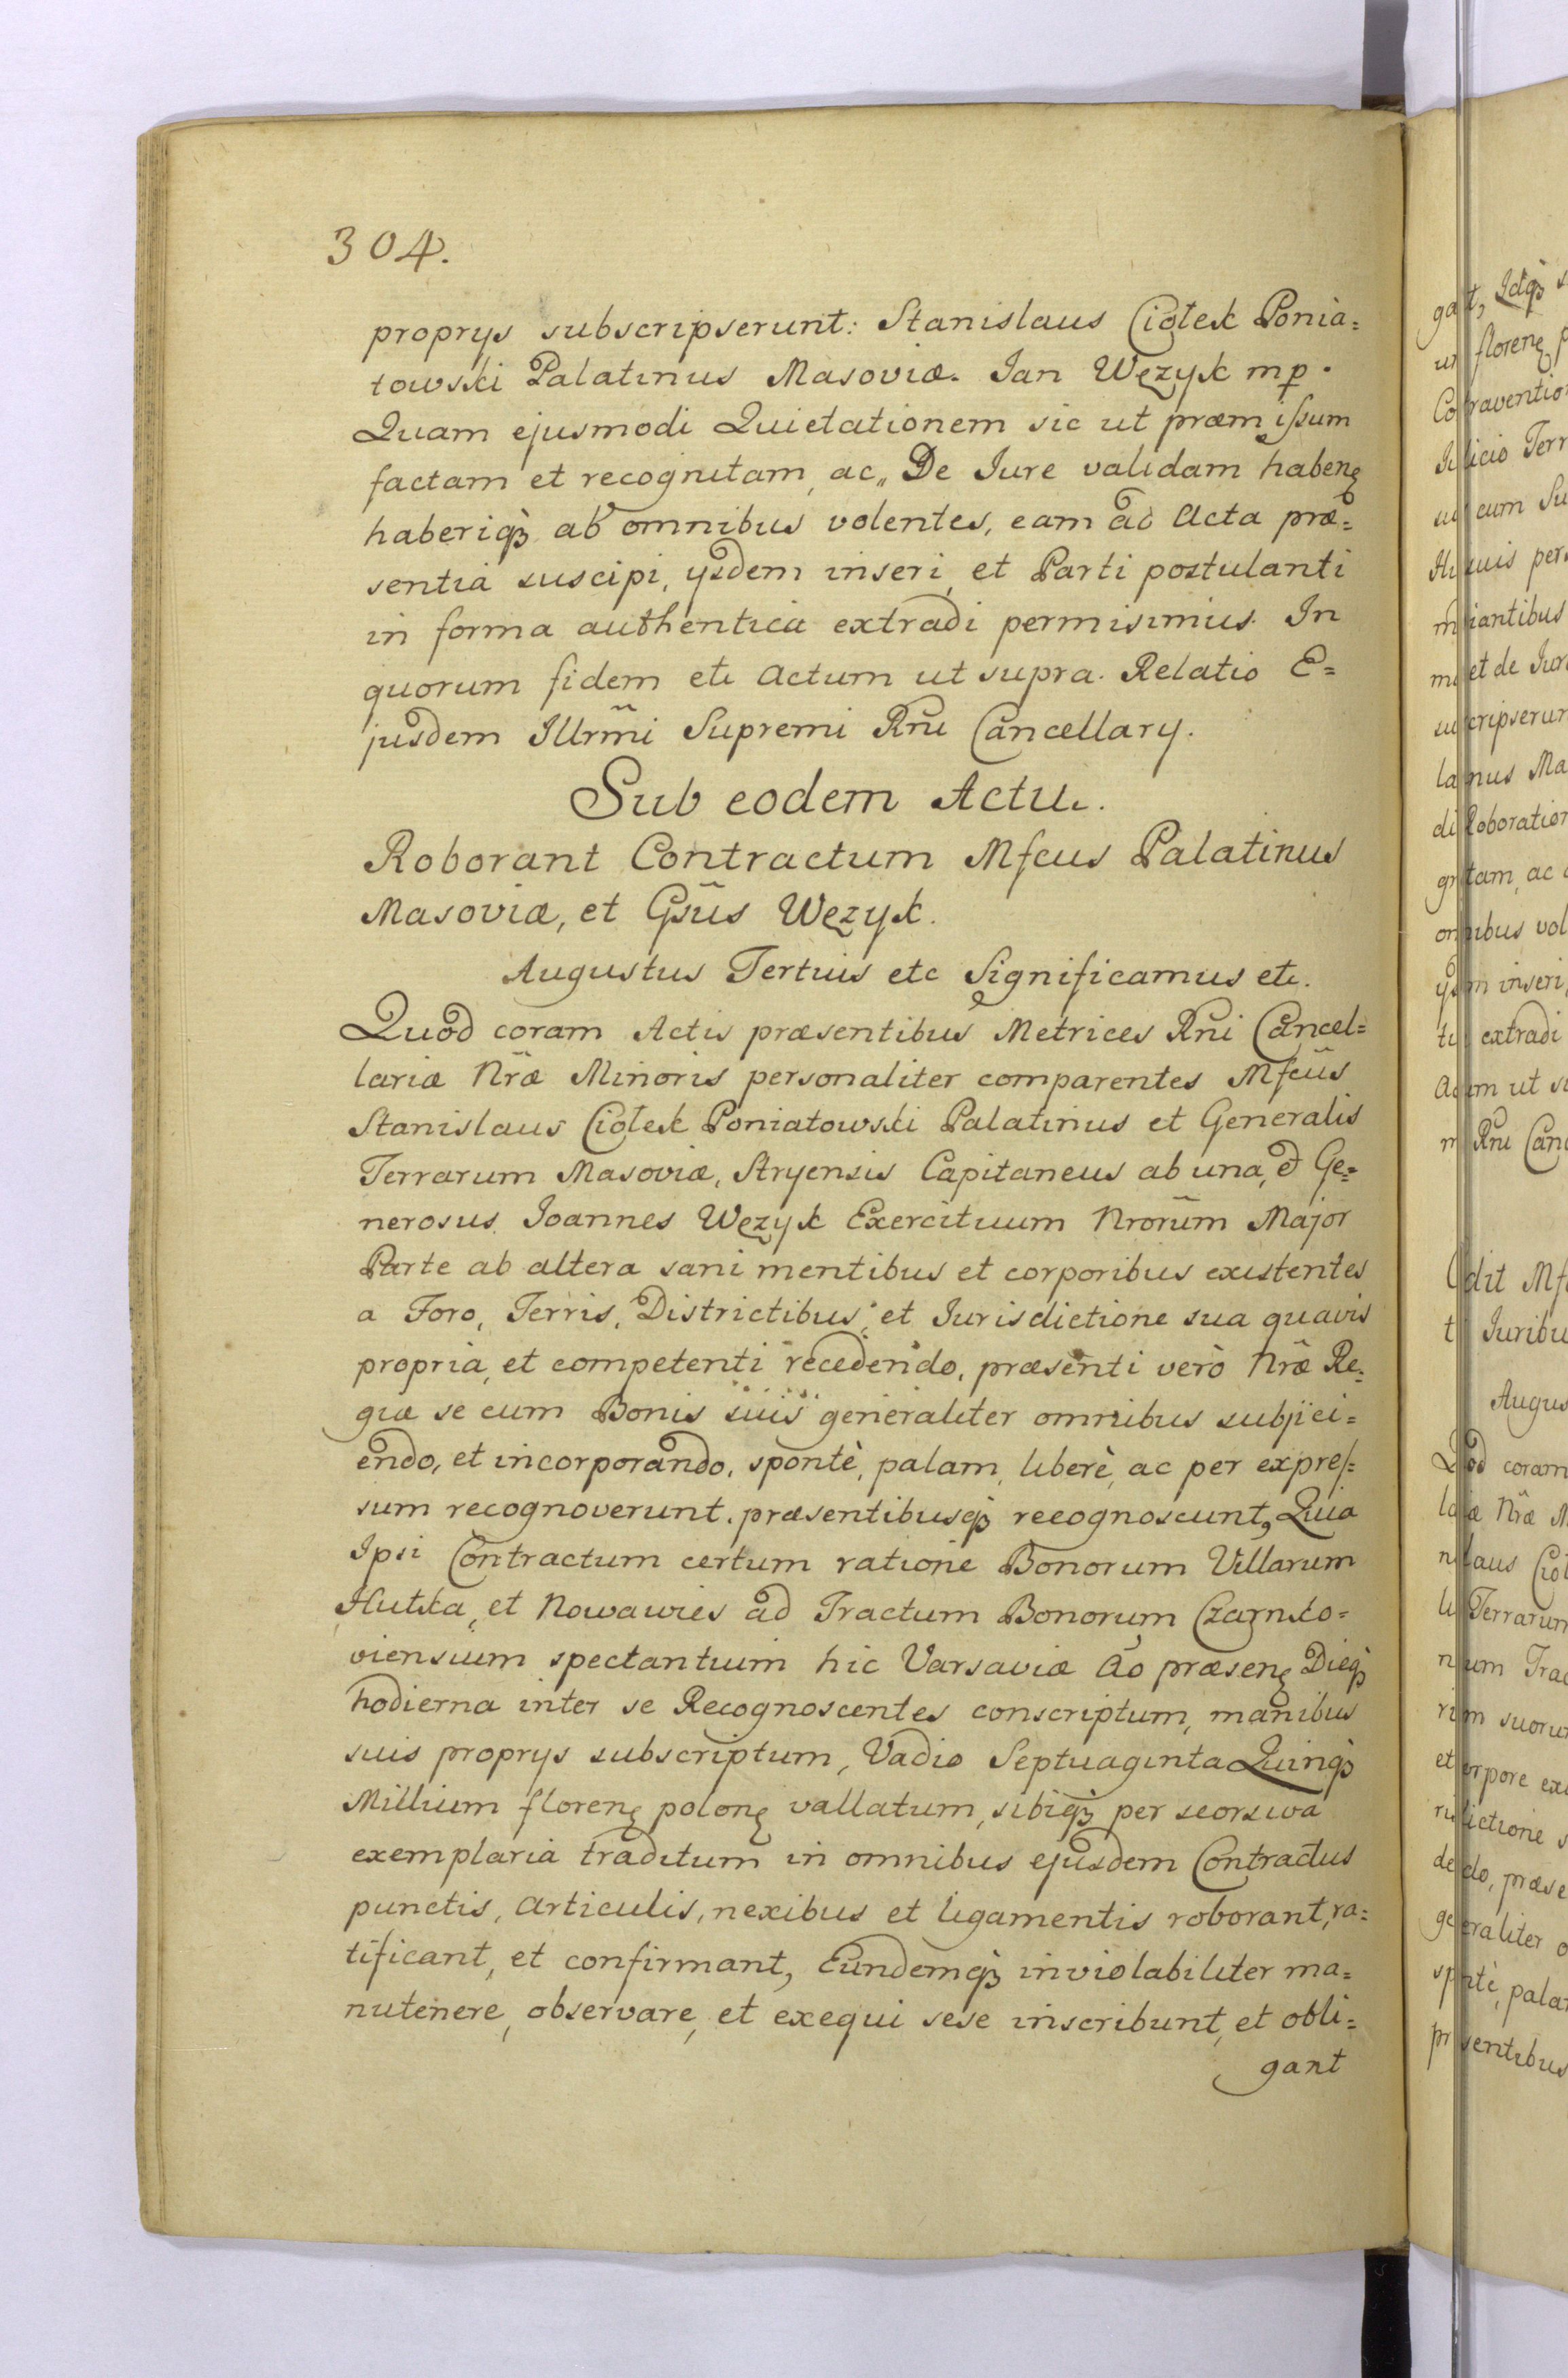 304.
proprys subscripserunt: Stanislaus Ciołek Ponia=
towski Palatinus Masoviæ. Jan Węzyk mp.
Quam ejusmodi Quietationem sic ut præmissum
factam et recognitam, ac,, De Jure validam habenę
haberiq̀ꝫ ab omnibus volentes, eam ad Acta præ=
sentia suscipi, ysdem inseri, et Parti postulanti
in forma authentica extradi permisimus. In
quorum fidem etc Actum ut supra. Relatio E=
jusdem Illrm̃i Supremi Rñi Cancellary.
Sub eodem Actu.
Roborant Contractum Mfcus Palatinus
Masoviæ, et Gsũs Węzyk.
Augustus Tertius etc Significamus etc.
Quod coram Actis præsentibus Metrices Rñi Cancel=
lariæ Nr̃æ Minoris personaliter comparentes Mfcũs
Stanislaus Ciołek Poniatowski Palatinus et Generalis
Terrarum Masoviæ, Stryensis Capitaneus ab una, & Ge=
nerosus Joannes Węzyk Exercituum Nrorũm Major
Parte ab altera sani mentibus et corporibus existentes
a Foro, Terris, Districtibus, et Jurisdictione sua quavis
propria, et competenti recedendo, præsenti verò Nr̃æ Re=
giæ se cum Bonis suis generaliter omnibus subjici=
endo, et incorporando, spontè, palam, liberè, ac per expres=
sum recognoverunt, præsentibusq̀ꝫ recognoscunt, Quia
Ipsi Contractum certum ratione Bonorum Villarum
Hutka, et Nowawies ad Tractum Bonorum Czarnko=
viensium spectantium hic Varsaviæ Ao præsenę Dieq̀ꝫ
hodierna inter se Recognoscentes conscriptum, manibus
suis proprys subscriptum, Vadio Septuaginta Quinq̀ꝫ
Millium florenę polonę vallatum, sibiq̀ꝫ per seorsiva
exemplaria traditum in omnibus ejusdem Contractus
punctis, Articulis, nexibus et ligamentis roborant, ra=
tificant, et confirmant, Eundemq̀ꝫ inviolabiliter ma=
nutenere, observare, et exequi sese inscribunt, et obli=
gant